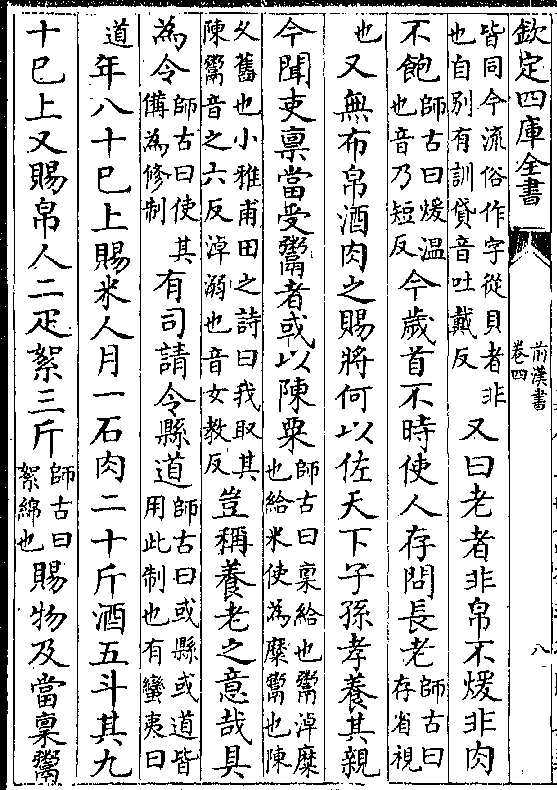 欽定四庫全書
前漢書
卷四
八
皆同今流俗作字從貝者非
也自别有訓貸音吐戴反
又曰老者非帛不煖非肉
不飽
師古曰煖温
也音乃短反
今歲首不時使人存問長老
師古曰
存省視
也
又無布帛酒肉之賜將何以佐天下子孫孝養其親
今聞吏稟當受鬻者或以陳粟
師古曰稟給也鬻淖糜
也給米使為糜鬻也陳
乆舊也小雅甫田之詩曰我取其
陳鬻音之六反淖溺也音女教反
豈稱養老之意哉具
為令
師古曰使其
備為修制
有司請令縣道
師古曰或縣或道皆
用此制也有蠻夷曰
道
年八十已上賜米人月一石肉二十斤酒五斗其九
十已上又賜帛人二疋絮三斤
師古曰
絮綿也
賜物及當稟鬻